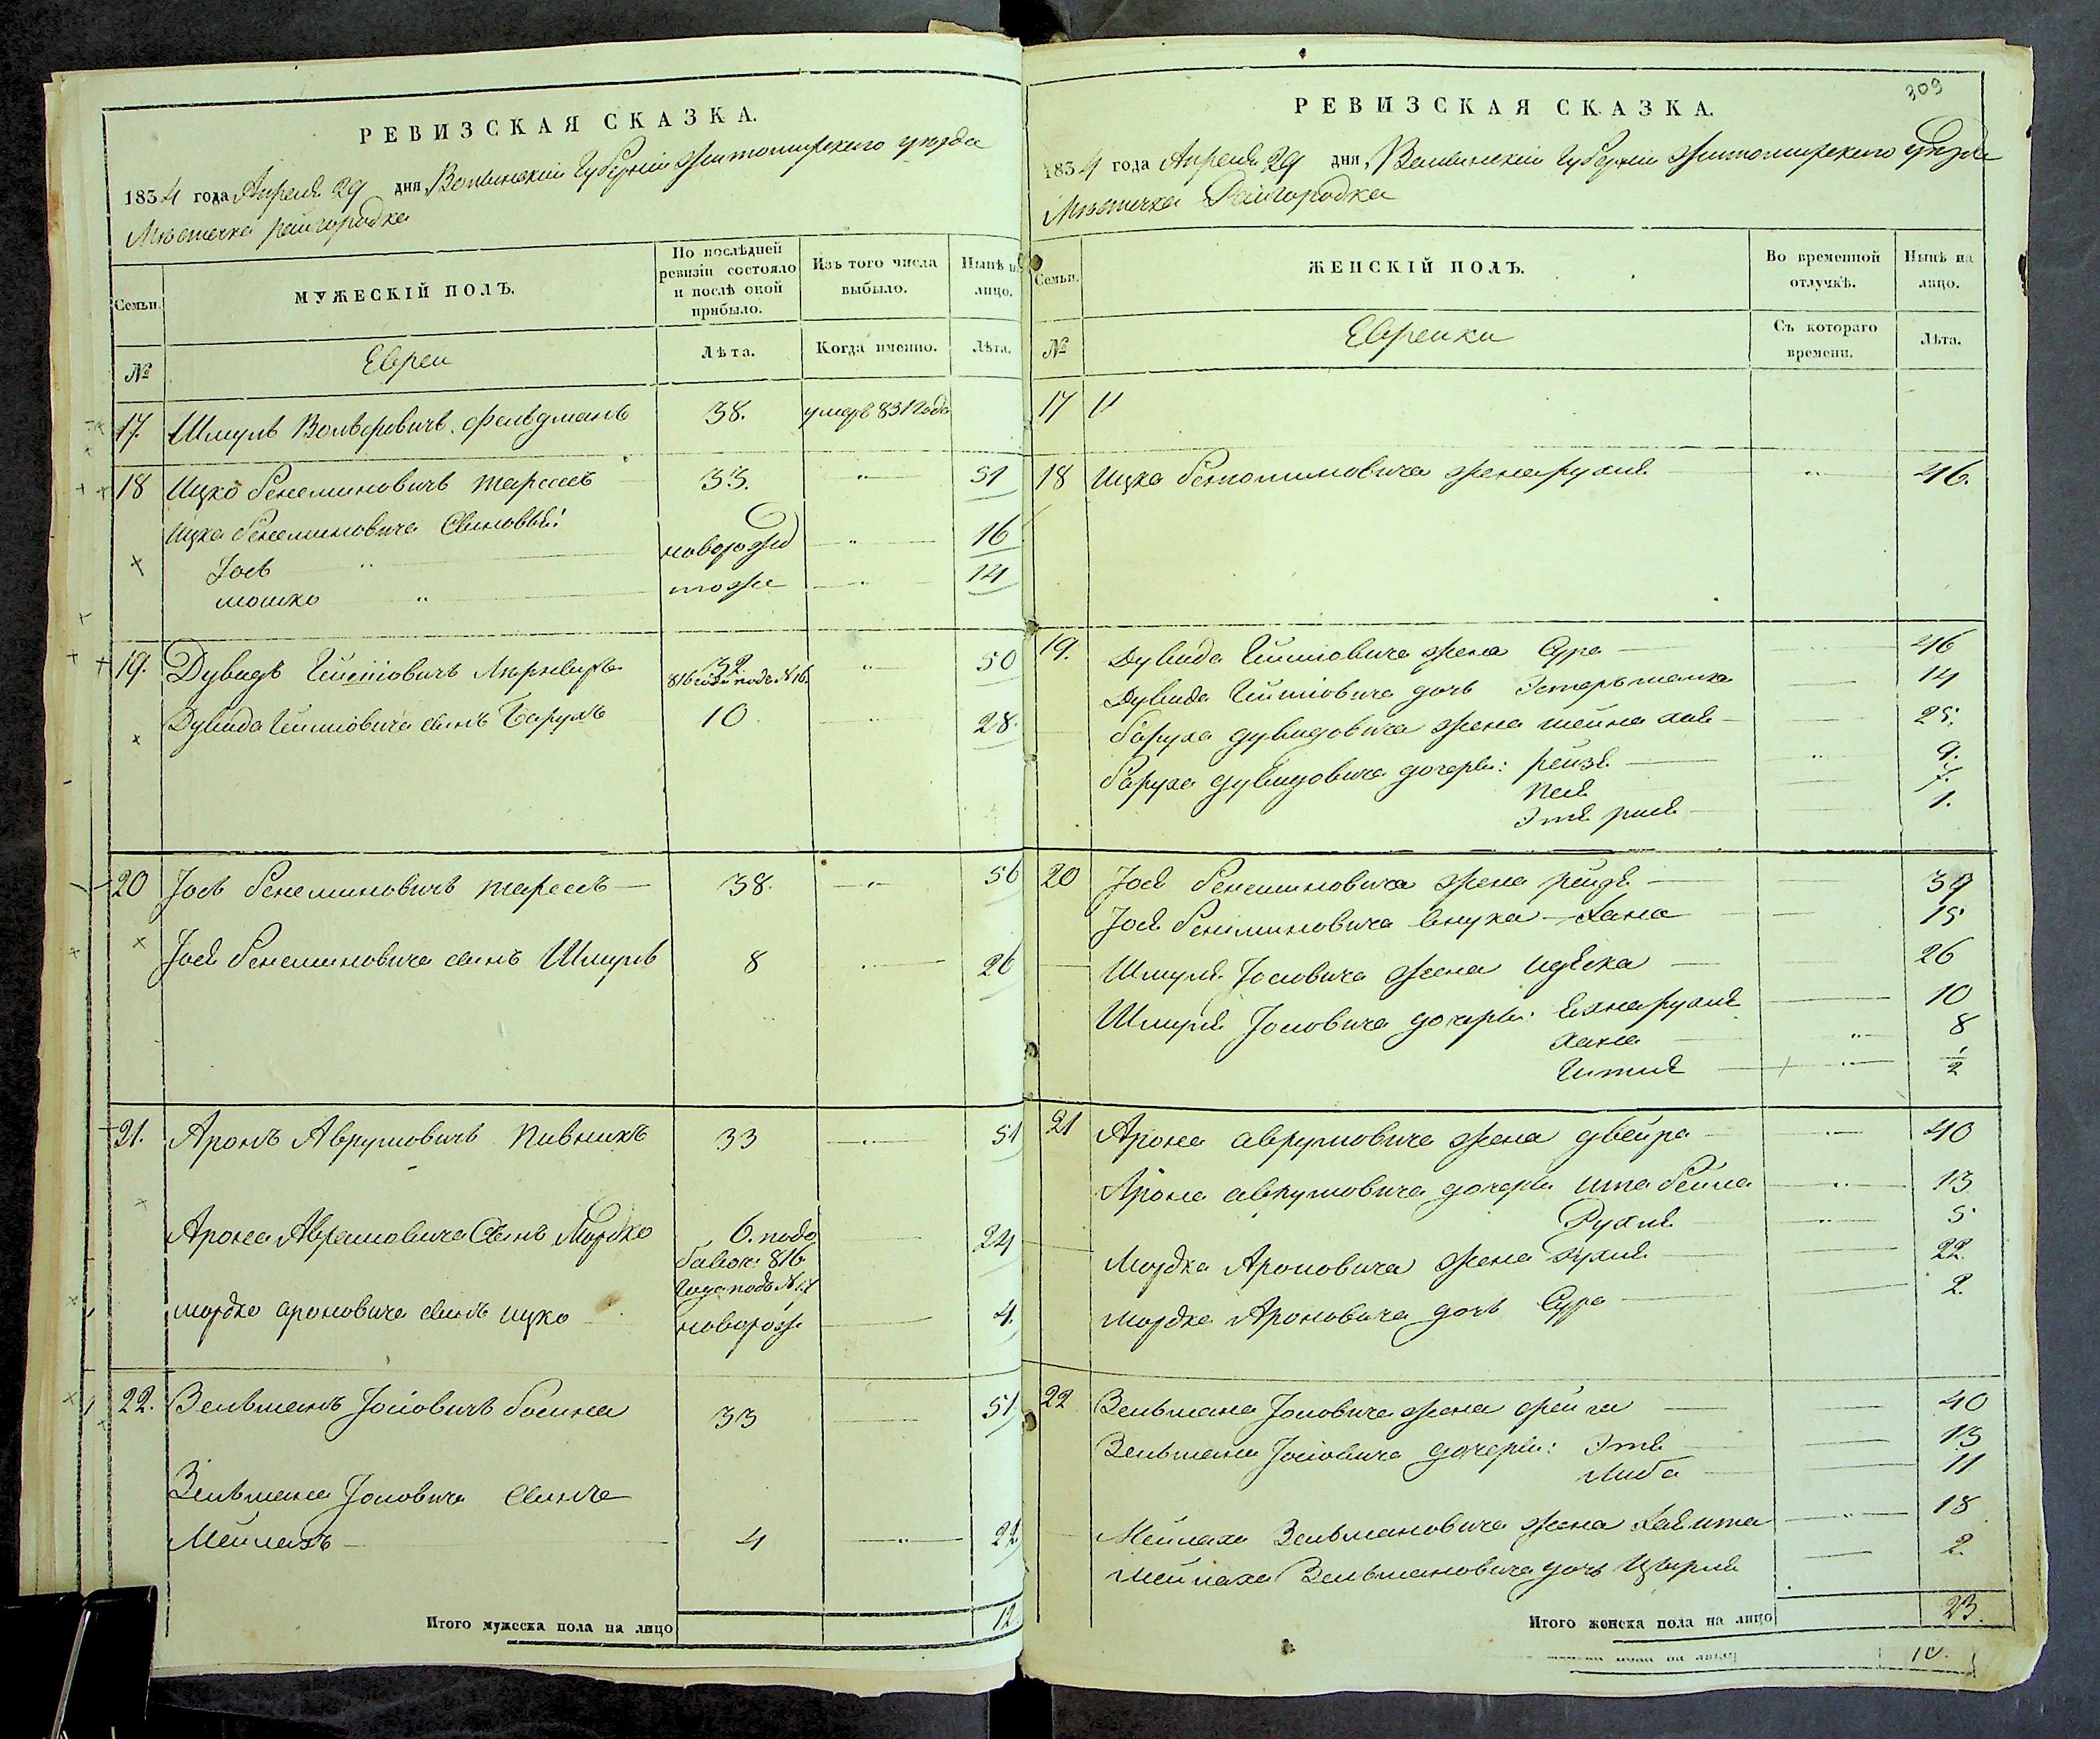 РЕВИЗСКАЯ СКАЗКА.
1834 года Апреля 29 дня, Волынской Губерніи Житомирского уезда
Местечка райгородка
Семьи.
МУЖЕСКІЙ ПОЛЪ.
По послѣдней
ревизіи состояло
и послѣ оной
прибыло.
Изъ того числа
выбыло.
Нынѣ н
лицо.
№
Евреи
Лѣта.
Когда именно.
Лѣта.
17. Шмуль Вольфовичъ фельдманъ 38. умеръ 831 года
18 Ицко бенеминовичъ 33. " 51
Ицка бенеминовича сыновья:
Іось " новорожд " 16
мошко " тоже " 14
19. Дувидъ 32 " 50
816 года подъ № 16.
Дувида сынъ Барухъ 10. " 28.
20 Іось бенеминовичъ 38. " 56
Іося бенеминовича сынъ Шмуль 8 " 26
21. Аронъ Аврумовичъ Пивникъ 33 " 51
Арона Аврамовича Сынъ Мордко 6. подо 24
бавоч: 816
года подъ №
мордко ароновича сынъ ицко новорож 4.
22. Зельманъ Іосіовичъ 33 51
Зельмана Іосіовича
Мейлахъ 4 " 22
Итого мужеска пола на лицо 12
309
РЕВИЗСКАЯ СКАЗКА.
1834 года Апреля 29 дня, Волынской Губерніи Житомирского уезда
Местечка Райгородка
Семьи.
ЖЕНСКІЙ ПОЛЪ.
Во временной
отлучкѣ.
Нынѣ на
лицо.
№
Еврейки
Съ котораго
времени.
Лѣта.
17 "
18 Ицка жена рухля " 46.
19. Дувида жена Сура 46
Дувида дочь Эстеръ малка 14
баруха дувидовича жена шейна хая 25.
баруха дувидовича дочери: рейзя " 9.
Песя 7.
Этя рися 1.
20 Іося бенеминовича жена рейзя 39
Іося бениминовича внука Хана 15
Шмуля Іосіовича жена 26
Шмуля Іосіовича дочери: 10
хана " 8
Гитля " 1/2
21 Арона аврумовича жена двейра " 40
Арона аврумовича дочери ита бейла " 13
Рухля " 5
Мордка Ароновича жена рухля 22.
мордка Ароновича дочь Сура 2.
22 Зельмана Іосіовича жена фейга 40
Зельмана Іосіовича дочери: Этя 13
Либа 11
Мейлаха Зельмановича жена Хая ита " 18
Мейлаха Зельмановича дочь Цырля 2.
Итого женска пола на лицо 23.
10.